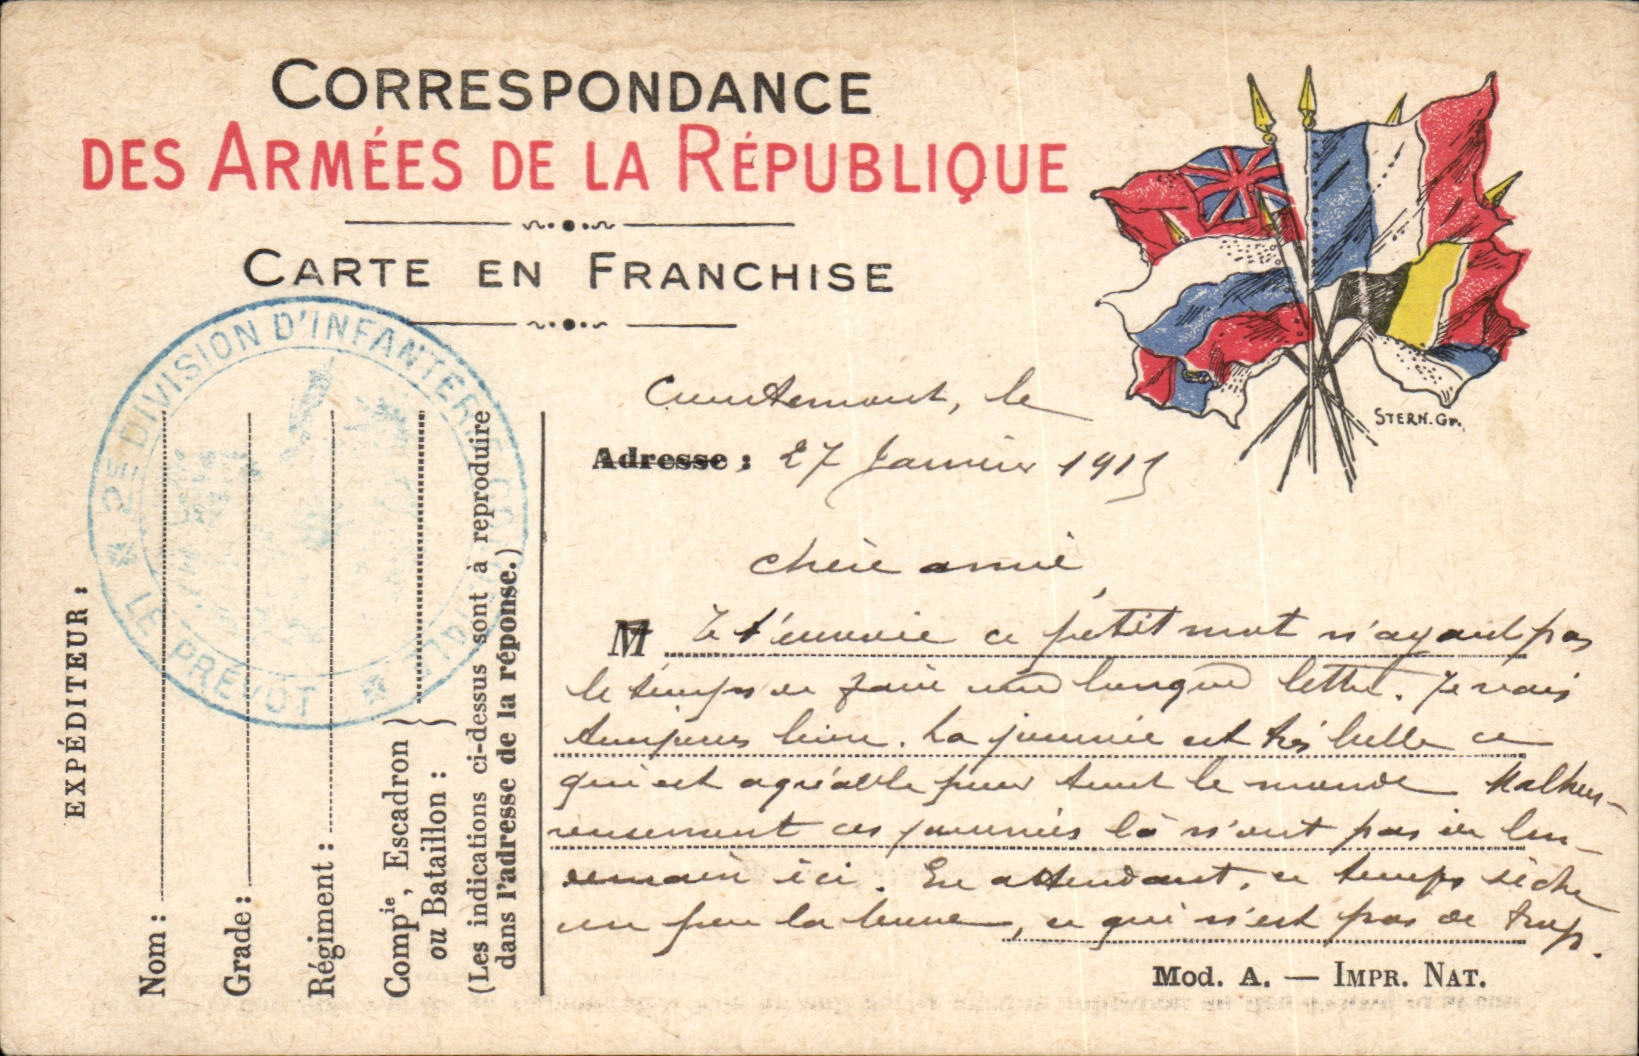 CORRESPONDANCE
DES ARMÉES DE LA RÉPUBLIQUE
CARTE EN FRANCHISE
STERN. Gr.
, le
Adresse : 27 Janvier 191
chère amie,
M Je t'envoie ce petit mot n'ayant pas
le temps de faire une longue lettre. Je vais
toujours bien. La journée est très belle ce
qui est agréable pour tout le monde Malheu-
reusement ces journées là n'ont pas de len-
demain ici. En attendant, ce temps sèche
un peu la boue, ce qui n'est pas de trop.
Mod. A. — IMPR. NAT.
EXPÉDITEUR :
Nom :
Grade :
Régiment :
Comp<sup>ie</sup>, Escadron
ou Bataillon :
(Les indications ci-dessus sont à reproduire
dans l'adresse de la réponse.)
DE DIVISION D'INFANTERIE
LE PRÉVOT